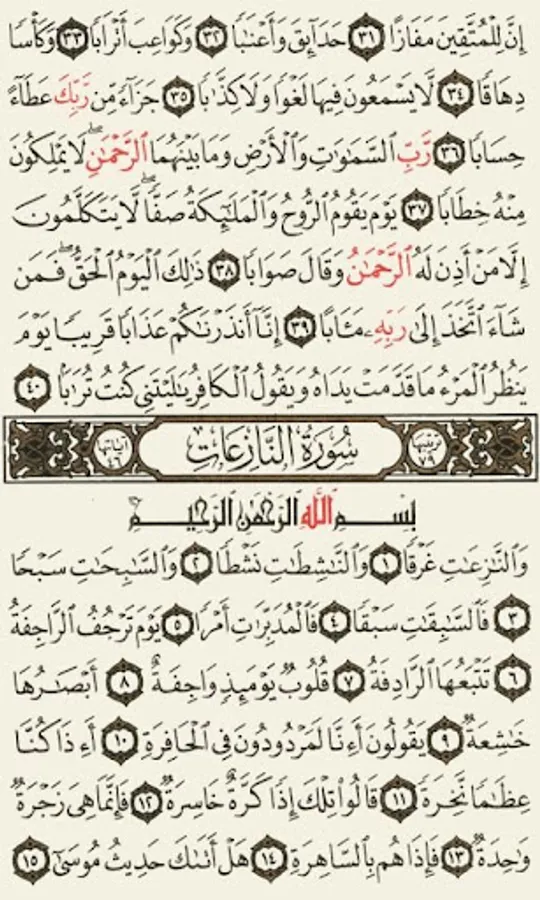 إِنَّ لِلْمُتَّقِينَ مَفَازًا ٣١ حَدَآئِقَ وَأَعْنَٰبًا ٣٢ وَكَوَاعِبَ أَتْرَابًا ٣٣ وَكَأْسًا
دِهَاقًا ٣٤ لَّا يَسْمَعُونَ فِيهَا لَغْوًا وَلَا كِذَّٰبًا ٣٥ جَزَآءً مِّن رَّبِّكَ عَطَآءً
حِسَابًا ٣٦ رَّبِّ السَّمَٰوَٰتِ وَالْأَرْضِ وَمَا بَيْنَهُمَا الرَّحْمَٰنِ ۖ لَا يَمْلِكُونَ
مِنْهُ خِطَابًا ٣٧ يَوْمَ يَقُومُ الرُّوحُ وَالْمَلَٰٓئِكَةُ صَفًّا ۖ لَّا يَتَكَلَّمُونَ
إِلَّا مَنْ أَذِنَ لَهُ الرَّحْمَٰنُ وَقَالَ صَوَابًا ٣٨ ذَٰلِكَ الْيَوْمُ الْحَقُّ ۖ فَمَن
شَآءَ اتَّخَذَ إِلَىٰ رَبِّهِۦ مَـَٔابًا ٣٩ إِنَّآ أَنذَرْنَٰكُمْ عَذَابًا قَرِيبًا يَوْمَ
يَنظُرُ الْمَرْءُ مَا قَدَّمَتْ يَدَاهُ وَيَقُولُ الْكَافِرُ يَٰلَيْتَنِي كُنتُ تُرَٰبًا ٤٠
ترتيبها ٧٩ سُورَةُ النَّازِعَاتِ آياتها ٤٦
بِسْمِ اللَّهِ الرَّحْمَٰنِ الرَّحِيمِ
وَالنَّٰزِعَٰتِ غَرْقًا ١ وَالنَّٰشِطَٰتِ نَشْطًا ٢ وَالسَّٰبِحَٰتِ سَبْحًا
٣ فَالسَّٰبِقَٰتِ سَبْقًا ٤ فَالْمُدَبِّرَٰتِ أَمْرًا ٥ يَوْمَ تَرْجُفُ الرَّاجِفَةُ
٦ تَتْبَعُهَا الرَّادِفَةُ ٧ قُلُوبٌ يَوْمَئِذٍ وَاجِفَةٌ ٨ أَبْصَٰرُهَا
خَٰشِعَةٌ ٩ يَقُولُونَ أَءِنَّا لَمَرْدُودُونَ فِي الْحَافِرَةِ ١٠ أَءِذَا كُنَّا
عِظَٰمًا نَّخِرَةً ١١ قَالُوا۟ تِلْكَ إِذًا كَرَّةٌ خَاسِرَةٌ ١٢ فَإِنَّمَا هِيَ زَجْرَةٌ
وَٰحِدَةٌ ١٣ فَإِذَا هُم بِالسَّاهِرَةِ ١٤ هَلْ أَتَىٰكَ حَدِيثُ مُوسَىٰٓ ١٥